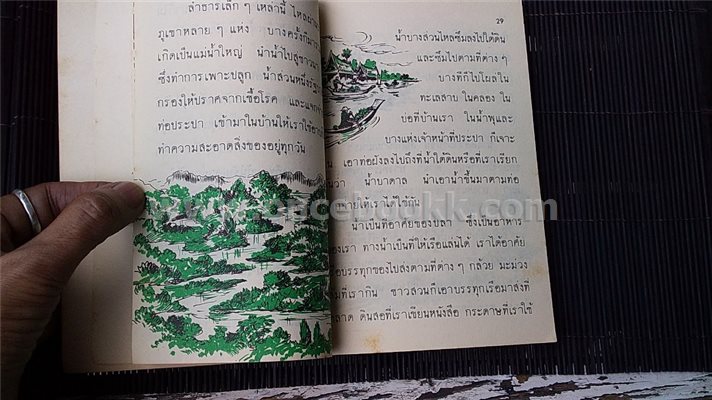 ลำธารเล็ก ๆ เหล่านี้ ไหลผ่าน
ภูเขาหลาย ๆ แห่ง บางครั้งก็มา
เกิดเป็นแม่น้ำใหญ่ นำน้ำไปสู่ชาวนา
ซึ่งทำการเพาะปลูก น้ำส่วนหนึ่ง
กรองให้ปราศจากเชื้อโรค และแจก
ท่อประปา เข้ามาในบ้านให้เราใช้
ทำความสะอาดสิ่งของอยู่ทุกวัน
29
น้ำบางส่วนไหลซึมลงไปใต้ดิน
และซึมไปตามที่ต่าง ๆ
บางทีก็ไปโผล่ใน
ทะเลสาบ ในคลอง ใน
บ่อที่บ้านเรา ในน้ำพุและ
บางแห่งเจ้าหน้าที่ประปา ก็เจาะ
เอาท่อฝังลงไปถึงที่น้ำใต้ดินหรือที่เราเรียก
น้ำบาดาล นำเอาน้ำขึ้นมาตามท่อ
ให้เราได้ใช้กัน
น้ำเป็นที่อาศัยของปลา ซึ่งเป็นอาหาร
ของเรา ทางน้ำเป็นที่ให้เรือแล่นได้ เราได้อาศัย
เรือบรรทุกของไปส่งตามที่ต่าง ๆ กล้วย มะม่วง
ที่เรากิน ชาวสวนก็เอาบรรทุกเรือมาส่งที่
ตลาด ดินสอที่เราเขียนหนังสือ กระดาษที่เราใช้
www.oncebookk.com